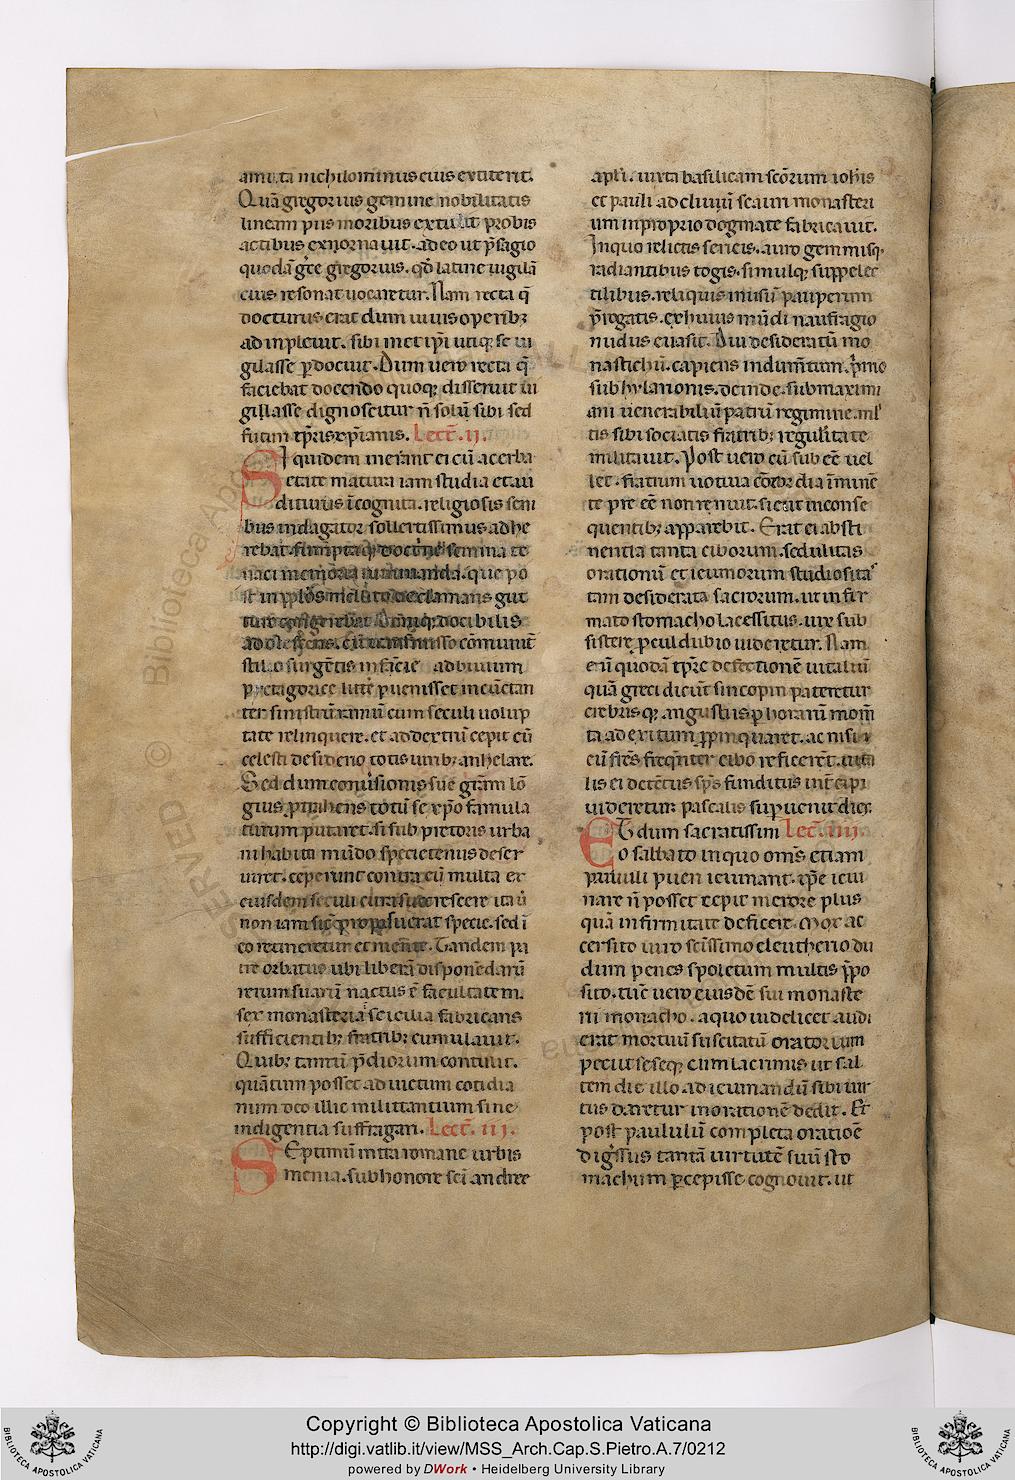 amita nichilominus eius extiterit.
Quā gregorius gemine nobilitatis
lineam piis moribus extulit probis
actibus exhornauit. adeo ut p̄sagio
quodā gr̄ce gregorius. qđ latine uigilā
cius resonat uocaretur. Nam recta q̄
docturus erat dum uiuis operibꝫ
adinpleuit. sibimet ip̄i utiqꝫ se ui
gilasse ꝑdocuit. Dum uero recta q̄
faciebat docendo quoqꝫ disseruit ui
gillasse dignoscitur n̄ solū sibi sed
futuri tp̄ris xp̄ianis. Lect̄. ii.
Siquidem inerant ei cū acerba
etate matura iam studia et au
diturus īcognita. religiosis seni
bus indagator sollertissimus adhe
rebat. doct'ne semina te
naci que po
st in declamans gut
ture docibilis
cōmunit
stilo surgētis infācie ad biuium
pytagorice litte puenisset incūctan
ter sinistrū ramū cum seculi uolup
tate relinquere. et ad dextrū cepit cū
celesti desiderio totis uiribꝫ anhelare.
Sed dum conu'sionis sue grām lō
gius ꝓtrahens totū se xp̄o famula
turum putaret. si sub pretoris urba
ni habitu mūdo specietenus deser
uiret. ceperunt contra eū multa ex
eiusdem seculi cura succrescere ita ù
non iam sic̄ ꝓposuerat specie. sed ī
eo retineretur et mente. Tandem pa
tre orbatus ubi liberā disponēdarū
rerum suarū nactus ē facultatem.
sex monasteria sicilia fabricans
sufficientibꝫ fratribꝫ cumulauit.
Quibꝫ tantū p̄diorum contulit.
quātum posset ad uictum cotidia
num deo illic milittantium sine
indigentia suffragari. Lect̄. iii.
Septimū intra romane urbis
menia. sub honore sc̄i andree
apl̄i. iuxta basilicam sc̄orum ioh̄is
et pauli ad cliuū scauri monasteri
um in proprio dogmate fabricauit.
Inquo relictis sericis. auro gemmisqꝫ
radiantibus togis. simulqꝫ suppelec
tilibus. reliquis inusū pauperum
p̄rogatis. exhuius mūdi naufragio
nudus euasit. Diu desideratū mo
nastichū. capiens indum̄tum. p'mo
sub hylarionis. deinde. sub maximi
ani uenerabiliū patrū regimine. ml'
tis sibi sociatis fratribꝫ regulari̇tate
militauit. Post uero eū sub eē uel
let. fratrum uotiua īminē
te pre eē non renuit. sicut inconse
quentibꝫ apparebit. Erat ei absti
nentia tanta ciborum. sedulitas
orationū et ieiuniorum studiosita'
tam desiderata sacrorum. ut infir
mato stomacho lacessitus. uix sub
sistere ꝓculdubio uideretur. Nam
eni̅ quodā tp̄re defectionē uitaliū
quā greci dicūt sincopin pateretur
crebris qꝫ angustiis ꝑ horarū mom̄
ta ad exitum ꝓpinquaret. ac nisi i
eū fr̄es freq̄nter cibo reficeret. uita
lis ei detētus sp̄s funditus int'cipi
uideretur pascalis sup'uenit dies.
Et dum sacratissimi Lec̄t. iiij.
o sabbato inquo om̄s etiam
paruuli pueri ieiunant. ip̄e ieiu
nare n̄ posset cepit merore plus
quā infirmitate deficere. Mox ac
cersito uiro sc̄issimo eleutherio du
dum penes spoletum multis p̄po
sito. tūc uero eiusdē sui monaste
rii monacho. aquo uidelicet audi
erat mortuū suscitatū oratorium
peciit seseqꝫ cum lacrimis ut sal
tem die illo. ad ieiunandū sibi uir
tus daretur in orationē dedit. Et
post paululū completa oratiōe
digr̄ssus tantā uirtutē suū sto
machum ꝑcepisse cognouit. ut
Copyright © Biblioteca Apostolica Vaticana
http://digi.vatlib.it/view/MSS_Arch.Cap.S.Pietro.A.7/0212
powered by DWork • Heidelberg University Library
BIBLIOTECA APOSTOLICA VATICANA
BIBLIOTECA APOSTOLICA VATICANA